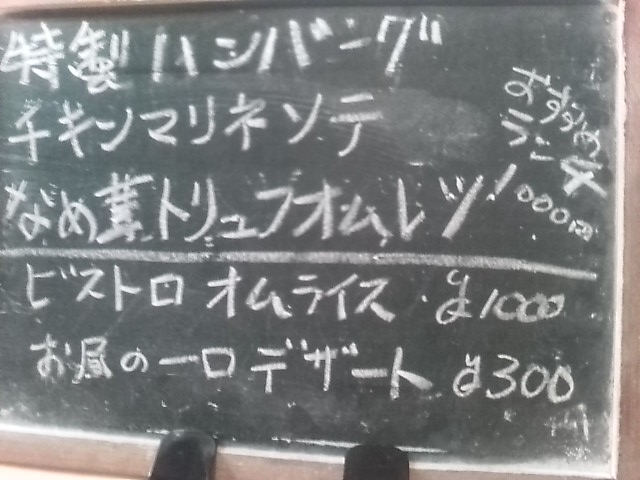 特製ハンバーグ
チキンマリネソテー
なめ茸トリュフオムレツ
おすすめ
ランチ
1000円
ビストロ オムライス ¥1000
お昼の一口デザート ¥300